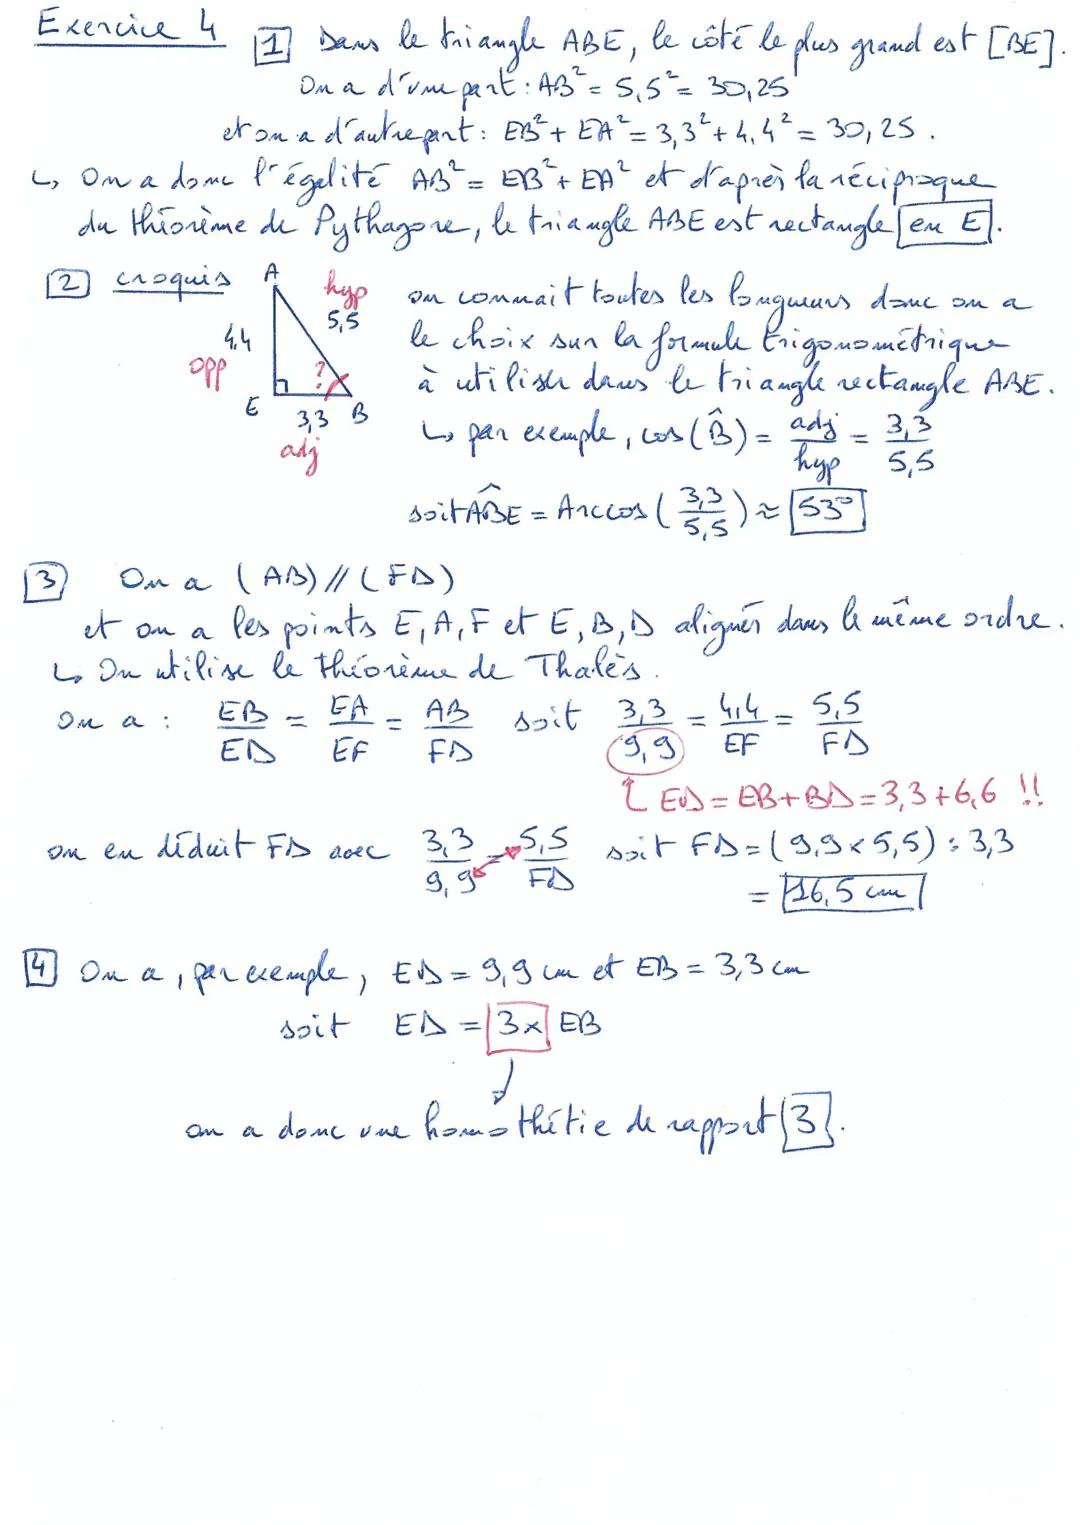 Exercice 4
1 Dans le triangle ABE, le côté le plus grand est [BE].
On a d'une part : AB² = 5,5² = 30,25
et on a d'autre part : EB² + EA² = 3,3² + 4,4² = 30,25.
↳ On a donc l'égalité AB² = EB² + EA² et d'après la réciproque
du théorème de Pythagore, le triangle ABE est rectangle en E.
2 croquis
A
hyp
5,5
4,4
opp
?
E
3,3
B
adj
on connait toutes les longueurs donc on a
le choix sur la formule trigonométrique
à utiliser dans le triangle rectangle ABE.
↳ par exemple, cos(B̂) = adj/hyp = 3,3/5,5
soit ABE^ = Arccos(3,3/5,5) ≈ 53°
3 On a (AB) // (FD)
et on a les points E, A, F et E, B, D alignés dans le même ordre.
↳ On utilise le théorème de Thalès.
On a : EB/ED = EA/EF = AB/FD soit 3,3/9,9 = 4,4/EF = 5,5/FD
ED = EB + BD = 3,3 + 6,6 !!
on en déduit FD avec 3,3/9,9 = 5,5/FD soit FD = (9,9 × 5,5) : 3,3
= 16,5 cm
4 On a, par exemple, ED = 9,9 cm et EB = 3,3 cm
soit ED = 3 × EB
on a donc une homothétie de rapport 3.